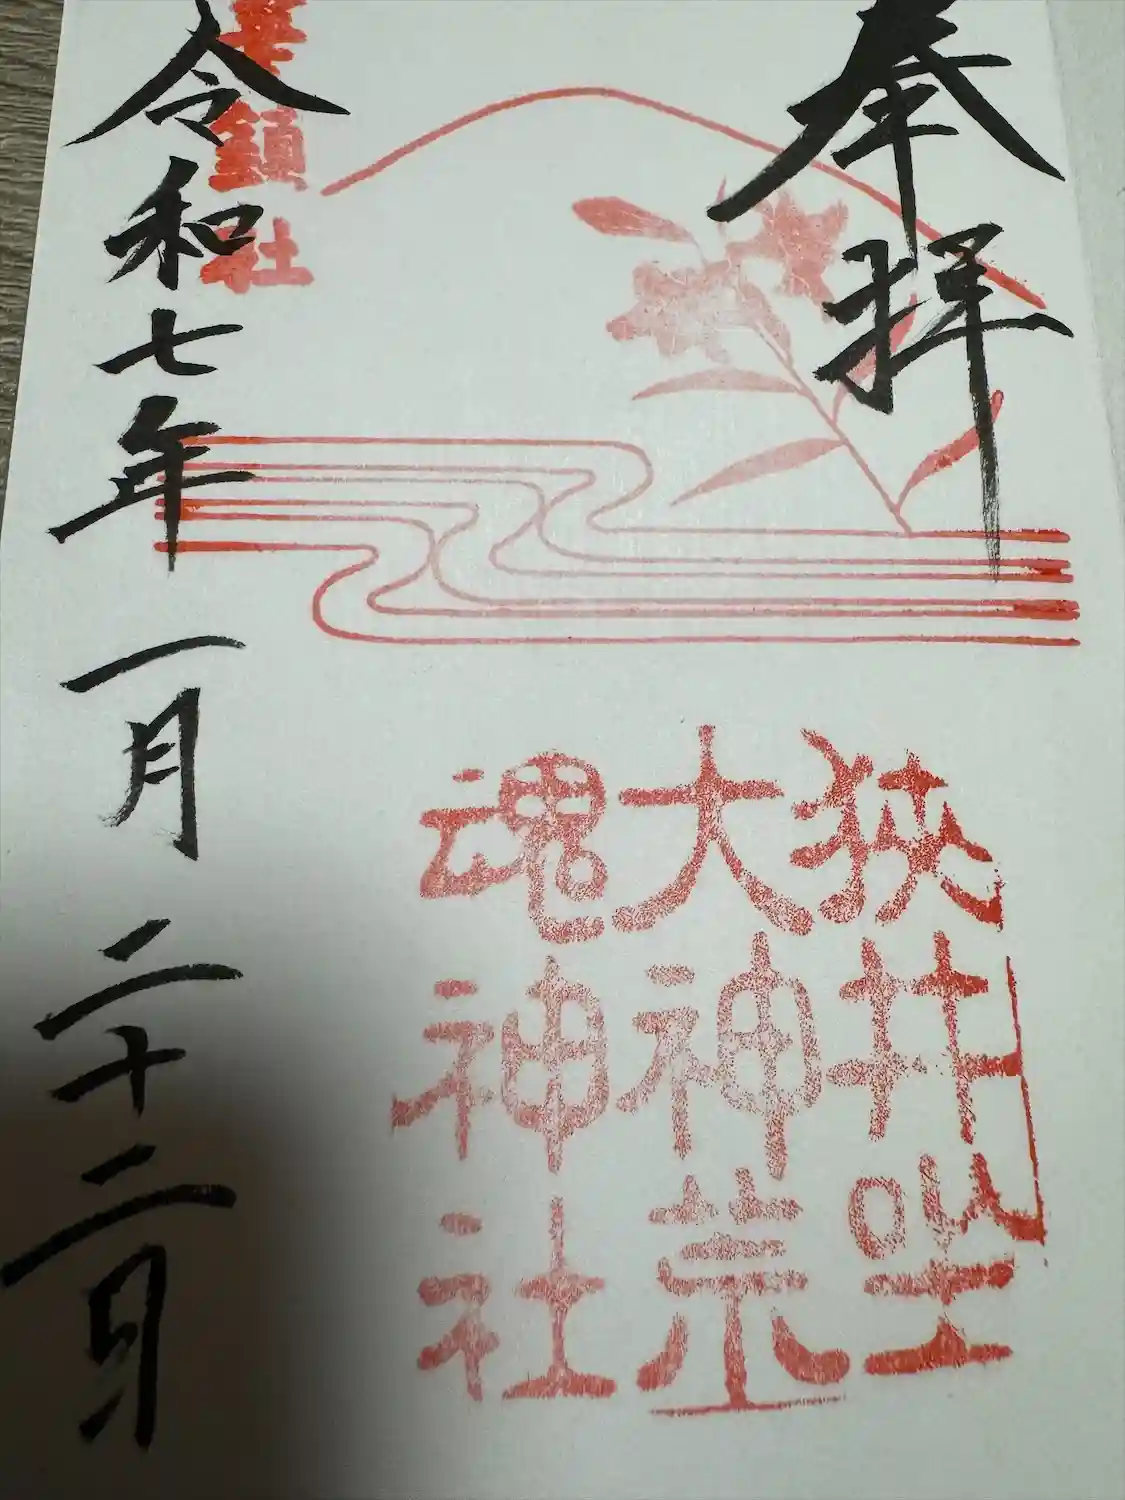 奉拝
狭井坐
大神荒
魂神社
華鎮社
令和七年 一月 二十二日